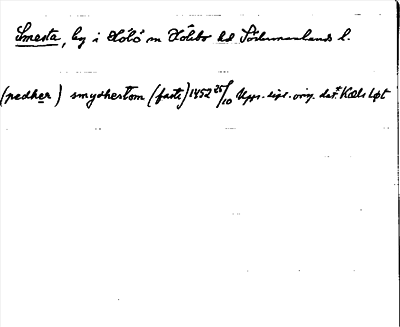 Smesta, by i Hölö sn Hölebo hd Södermanlands l.
(pedher) smydhestom (faste) 1452 25/10 Upps. eccl. orig. dat. Kæls løt